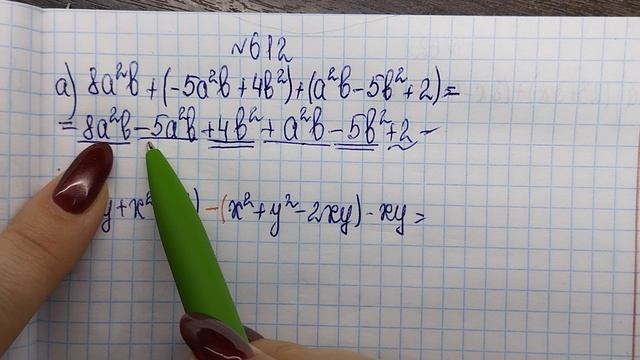 №612
а) 8a²b + (-5a²b + 4b²) + (a²b - 5b² + 2) =
= 8a²b - 5a²b + 4b² + a²b - 5b² + 2 -
y + x² ) - (x² + y² - 2xy) - xy =